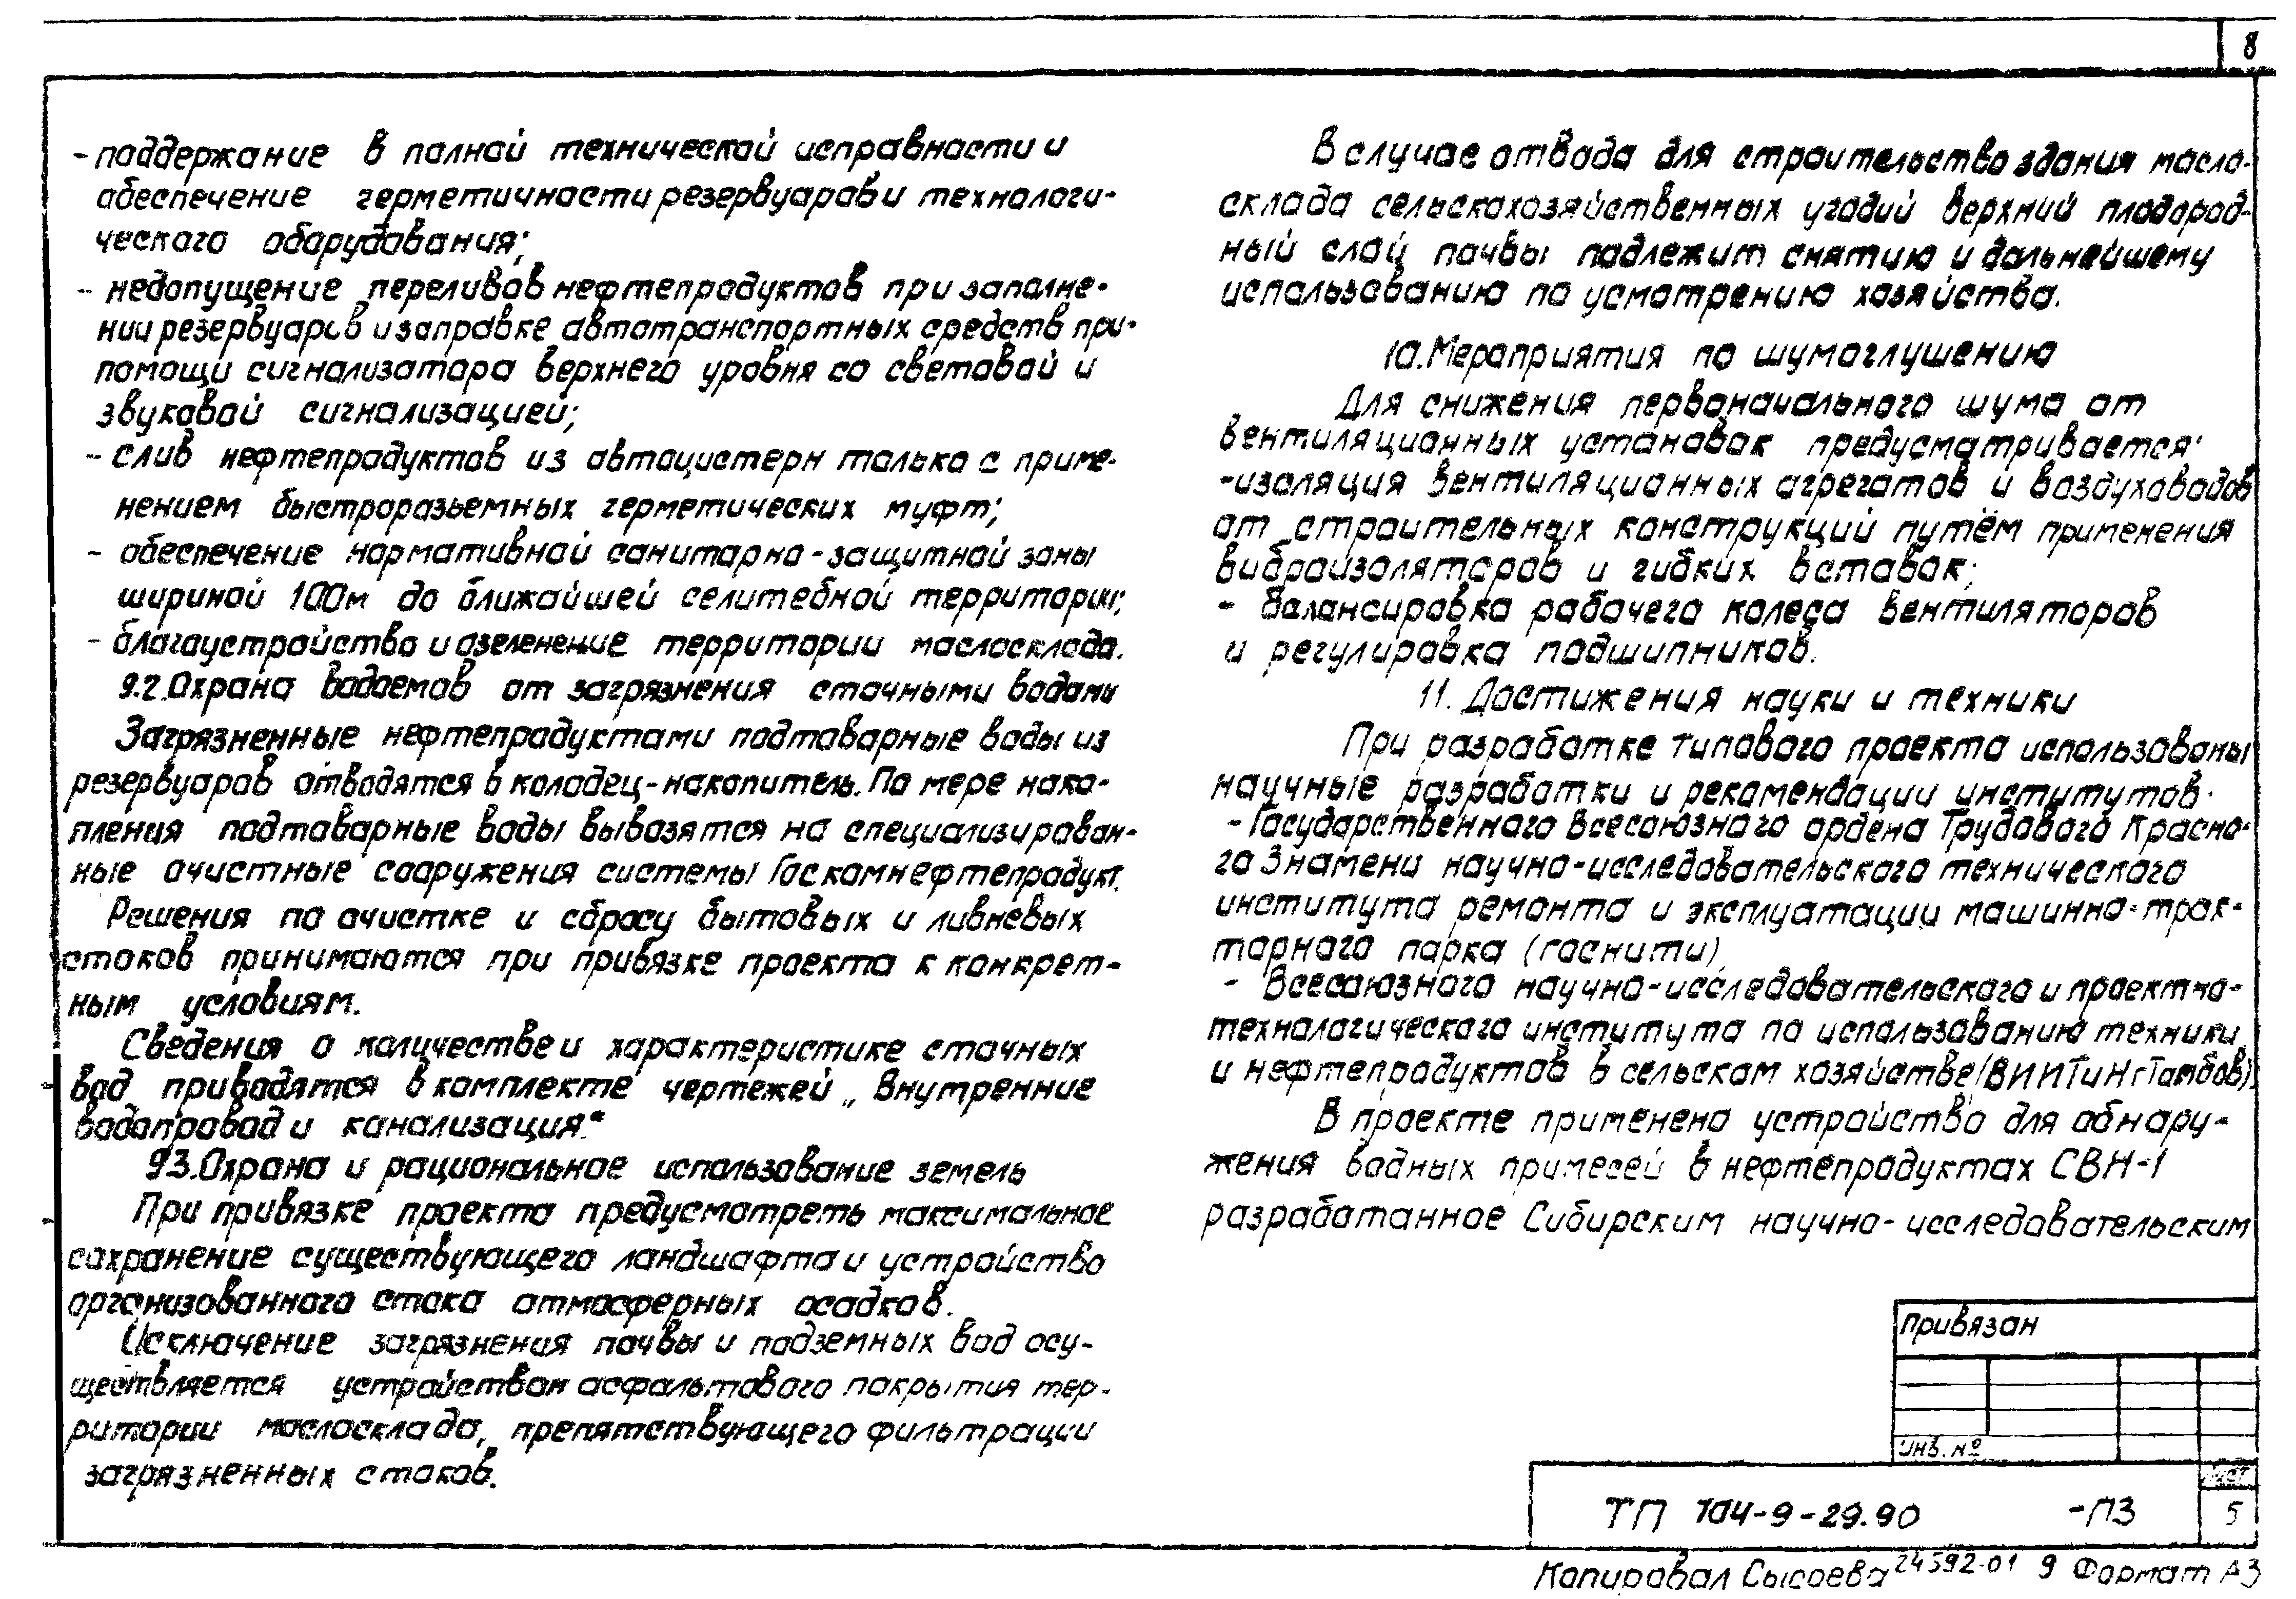 8
- поддержание в полной технической исправности и
обеспечение герметичности резервуаров и технологи-
ческого оборудования;
- недопущение переливов нефтепродуктов при заполне-
нии резервуаров и заправке автотранспортных средств при-
помощи сигнализатора верхнего уровня со световой и
звуковой сигнализацией;
- слив нефтепродуктов из автоцистерн только с приме-
нением быстроразъемных герметических муфт;
- обеспечение нормативной санитарно-защитной зоны
шириной 100м до ближайшей селитебной территории;
- благоустройство и озеленение территории маслосклада.
9.2. Охрана водоемов от загрязнения сточными водами
Загрязненные нефтепродуктами подтоварные воды из
резервуаров отводятся в колодец-накопитель. По мере нако-
пления подтоварные воды вывозятся на специализирован-
ные очистные сооружения системы Госкомнефтепродукт.
Решения по очистке и сбросу бытовых и ливневых
стоков принимаются при привязке проекта к конкрет-
ным условиям.
Сведения о количестве и характеристике сточных
вод приводятся в комплекте чертежей „Внутренние
водопровод и канализация."
9.3. Охрана и рациональное использование земель
При привязке проекта предусмотреть максимальное
сохранение существующего ландшафта и устройство
организованного стока атмосферных осадков.
Исключение загрязнения почвы и подземных вод осу-
ществляется устройством асфальтового покрытия тер-
ритории маслосклада, препятствующего фильтрации
загрязненных стоков.
В случае отвода для строительства здания масло-
склада сельскохозяйственных угодий верхний плодород-
ный слой почвы подлежит снятию и дальнейшему
использованию по усмотрению хозяйства.
10. Мероприятия по шумоглушению
Для снижения первоначального шума от
вентиляционных установок предусматривается:
- изоляция вентиляционных агрегатов и воздуховодов
от строительных конструкций путём применения
виброизоляторов и гибких вставок;
- балансировка рабочего колеса вентиляторов
и регулировка подшипников.
11. Достижения науки и техники
При разработке типового проекта использованы
научные разработки и рекомендации институтов:
- Государственного Всесоюзного ордена Трудового Красно-
го Знамени научно-исследовательского технического
института ремонта и эксплуатации машинно-трак-
торного парка (госнити),
- Всесоюзного научно-исследовательского и проектно-
технологического института по использованию техники
и нефтепродуктов в сельском хозяйстве (ВИИТиН г Тамбов).
В проекте применено устройство для обнару-
жения водных примесей в нефтепродуктах СВН-1
разработанное Сибирским научно-исследовательским
Привязан
инв. №
Лист
ТП 704-9-29.90 -ПЗ 5
Копировал Сысоева 24592-01 9 Формат А3